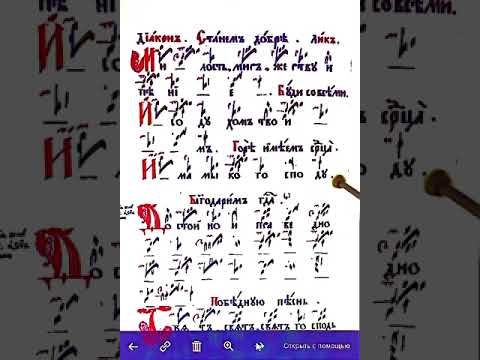 Дїаконъ. Станемъ добрѣ. Ликъ.
Ми лость, миръ. же ству и
пѣ нї е. Буди со всѣми.
И со ду хомъ тво и
мъ. Горѣ имѣемъ срⷣца̀.
И ма мы ко го спо ду.
Благодаримъ гдⷭа
До стои но и пра ве дно
Побѣдную пѣснь.
Свѧ тъ, свѧтъ, свѧтъ го сподь
Открыть с помощью